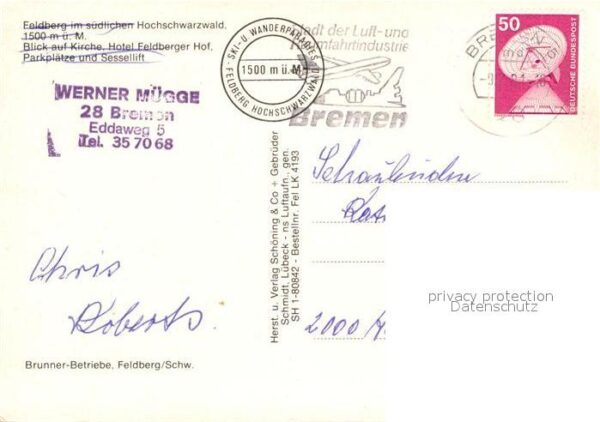 Feldberg im südlichen Hochschwarzwald,
1500 m ü. M.
Blick auf Kirche, Hotel Feldberger Hof,
Parkplätze und Sessellift
WERNER MÜGGE
28 Bremen
Eddaweg 5
Tel. 35 70 68
SKI- U. WANDERPARADIES
1500 m ü. M.
FELDBERG HOCHSCHWARZWALD
Stadt der Luft- und
Raumfahrtindustrie
Bremen
50
DEUTSCHE BUNDESPOST
Herst. u. Verlag Schöning & Co + Gebrüder
Schmidt, Lübeck - ns Luftaufn., gen.
SH 1-80842 - Bestellnr. Fel LK 4193
Chris
Roberts.
2000
privacy protection
Datenschutz
Brunner-Betriebe, Feldberg/Schw.